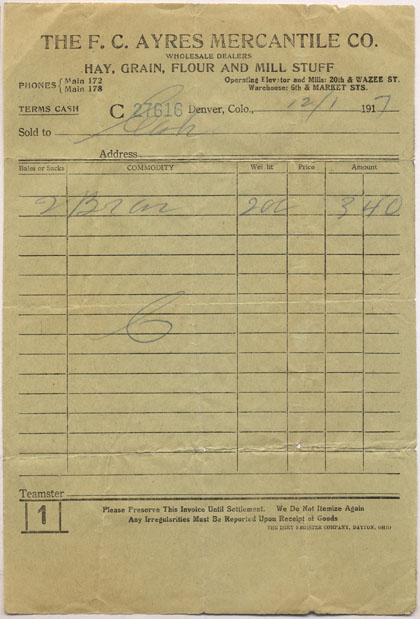 THE F. C. AYRES MERCANTILE CO.
WHOLESALE DEALERS
HAY, GRAIN, FLOUR AND MILL STUFF
PHONES { Main 172 Operating Elevator and Mills: 20th & WAZEE ST.
{ Main 178 Warehouse: 6th & MARKET STS.
TERMS CASH C 27616 Denver, Colo., 12/1 1917
Sold to Cash
Address
Bales or Sacks COMMODITY Wei ht Price Amount
2 Bran 200 3 40
Teamster
1 Please Preserve This Invoice Until Settlement. We Do Not Itemize Again
Any Irregularities Must Be Reported Upon Receipt of Goods
THE EGRY REGISTER COMPANY, DAYTON, OHIO